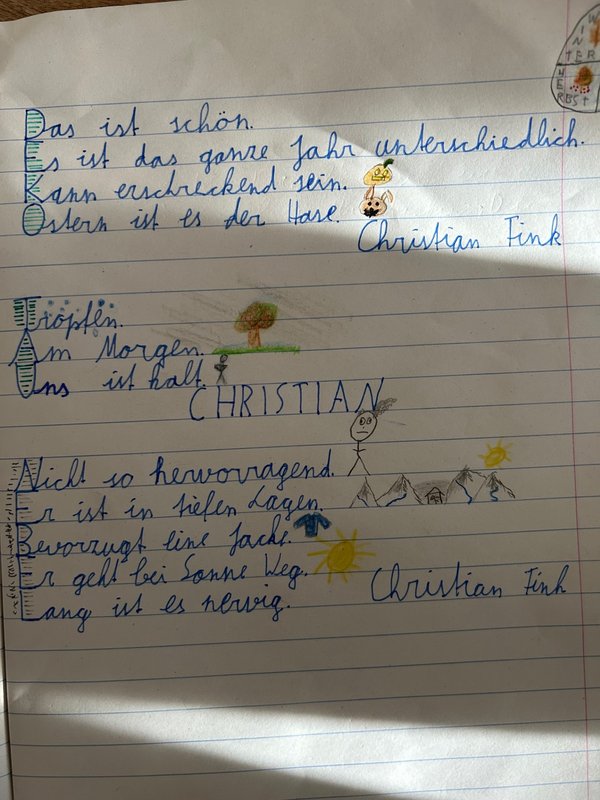 WINTER
HERBST
Das ist schön.
Es ist das ganze Jahr unterschiedlich.
Kann erschreckend sein.
Ostern ist es der Hase.
Christian Fink
Tropfen.
Am Morgen.
Uns ist kalt.
CHRISTIAN
Nicht so hervorragend.
Er ist in tiefen Lagen.
Bevorzugt eine Jacke.
Er geht bei Sonne Weg.
Lang ist es nervig.
Christian Fink